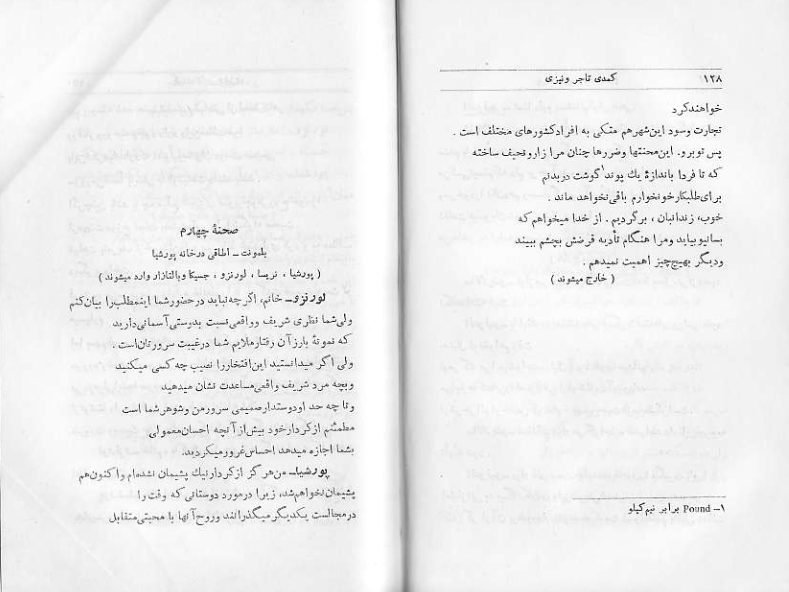 ۱۲۸ کمدی تاجر ونیزی
خواهندکرد
تجارت وسود این‌شهرهم متکی به افرادکشورهای مختلف است .
پس توبرو. این‌محنتها وضررها چنان مرا زارونحیف ساخته
که تا فردا باندازهٔ یك پوند۱ گوشت دربدنم
برای‌طلبکارخونخوارم باقی‌نخواهد ماند .
خوب، زندانبان ، برگردیم . از خدا میخواهم‌که
بسانیو بیاید ومرا هنگام تأدیه قرضش بچشم ببیند
ودیگر بهیچ‌چیز اهمیت نمیدهم .
( خارج میشوند )
۱– Pound برابر نیم‌کیلو
صحنهٔ چهارم
بلمونت – اطاقی درخانه پورشیا
( پورشیا ، نریسا ، لورنزو ، جسیکا وبالتازار وارد میشوند )
لورنزو– خانم، اگرچه نباید درحضورشما این‌مطلب‌را بیان‌کنم
ولی‌شما نظری شریف وواقعی‌نسبت بدوستی‌آسمانی‌دارید
که نمونهٔ بارزآن رفتارملایم شما درغیبت سرورتان‌است .
ولی اگر میدانستید این‌افتخاررا نصیب چه کسی میکنید
وبچه مرد شریف واقعی‌مساعدت نشان میدهید
وتا چه حد اودوستدارصمیمی سرورمن وشوهرشما است
مطمئنم ازکردارخود بیش‌از آنچه احسان‌معمولی
بشما اجازه میدهد احساس‌غرورمیکردید.
پورشیا– من‌هرگز ازکردارنیك پشیمان نشده‌ام واکنون‌هم
پشیمان‌نخواهم‌شد، زیرا درمورد دوستانی که وقت‌را
درمجالست یکدیگر میگذرانند وروح‌آنها با محبتی‌متقابل